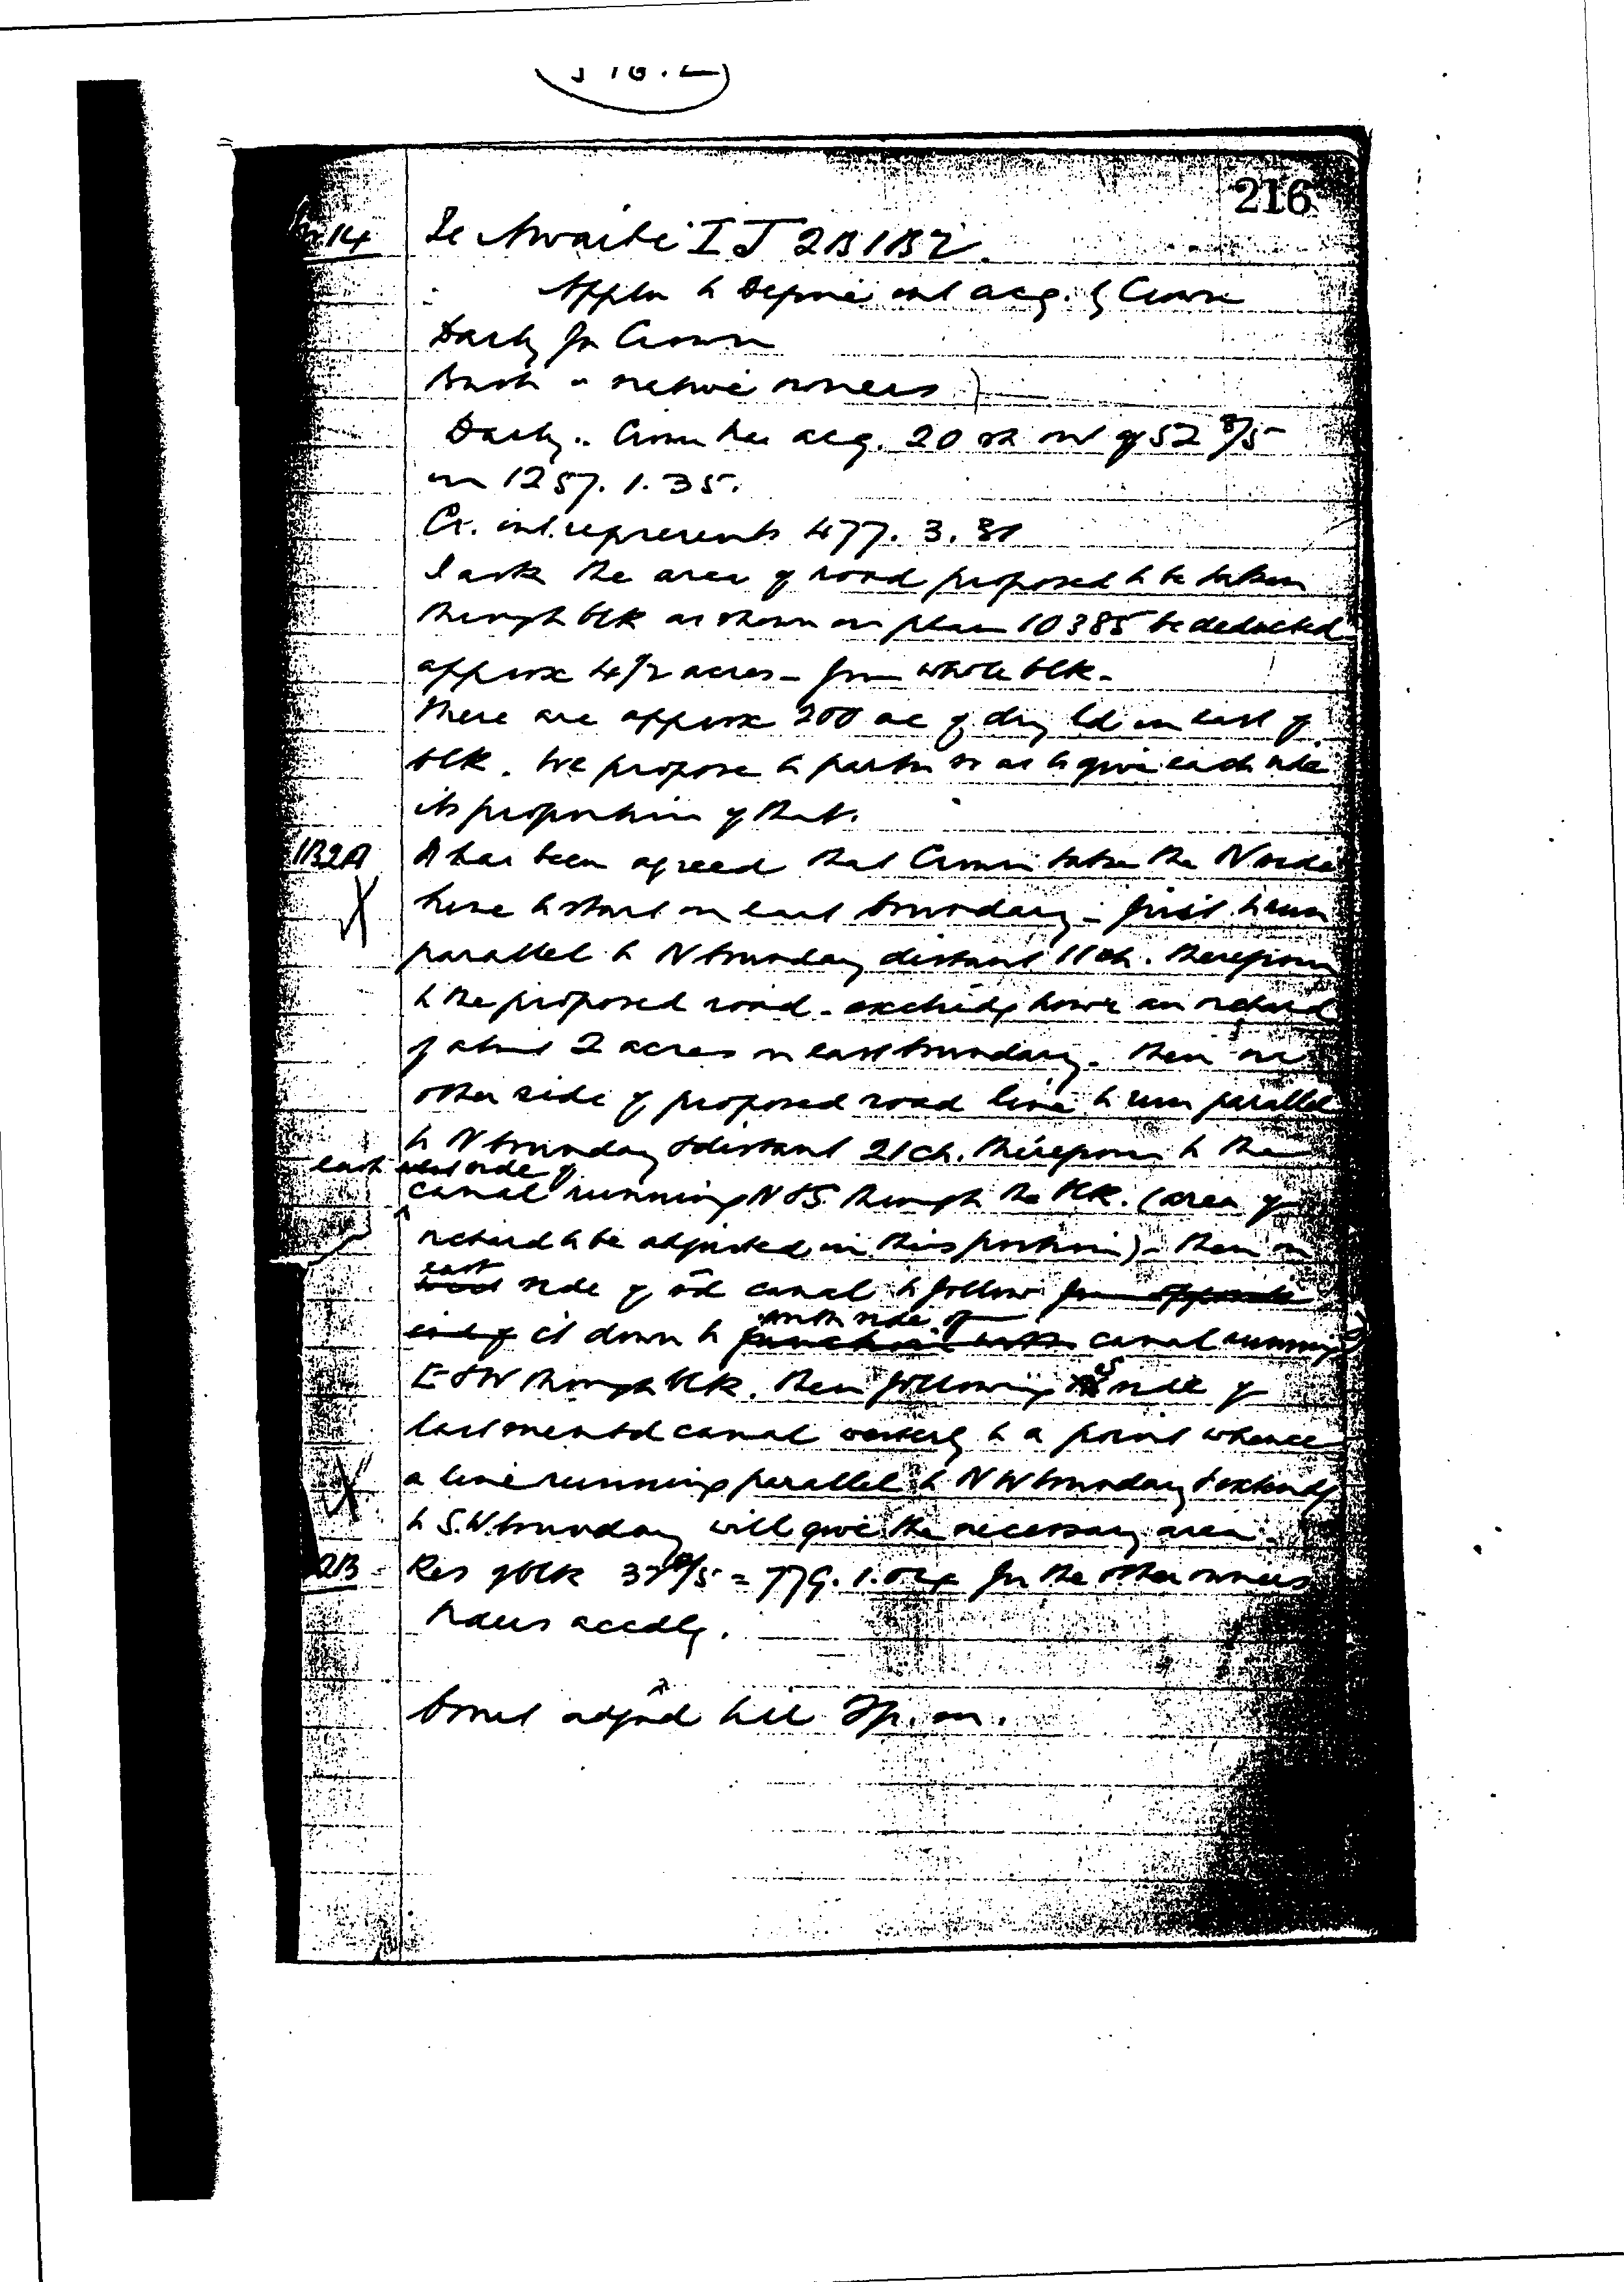 216
14 Te Awaite I J 2B1B2.
Appln to Define int acq. by Crown
Darby for Crown
Bush " native owners )
Darby: Crown has acq. 20 sh out of 52 8/5
in 1257. 1. 35.
Cr. int. represents 477. 3. 31
I ask the area of road proposed to be taken
through blk as shown on plan 10385 be deducted
approx 4 1/2 acres - from whole blk.
There are approx 200 ac of dry ld in east of
blk. We propose to partn so as to give each side
its proportion of that.
1B2A It has been agreed that Crown take the N side
line to start on east boundary - first to run
parallel to N boundary distant 11 ch. therefrom
to the proposed road - excludg howr an orchard
of about 2 acres on east boundary. Then on
other side of proposed road line to run parallel
to N boundary & distant 21 ch. therefrom to the
east side of
canal running N & S through the blk. (area of
orchard to be adjusted in this portion) - then on
east
side of sd canal to follow from opposite
end of it down to canal running
E & W through blk. then following S side of
last mentd canal westerly to a point whence
a line running parallel to N W boundary & extendg
to S.W. boundary will give the necessary area.
2B Res of blk = 779. 1. 04 for the other owners
accdly.
Court adjnd till 2 p.m.